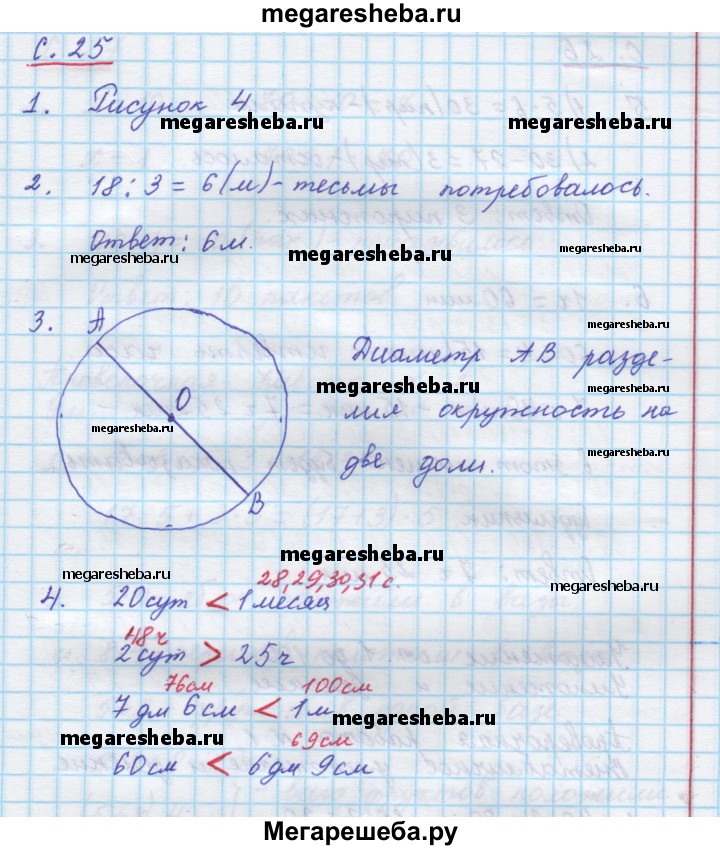 megaresheba.ru
с. 25
1. Рисунок 4
megaresheba.ru megaresheba.ru
2. 18 : 3 = 6 (м) - тесьмы потребовалось.
Ответ: 6 м.
megaresheba.ru megaresheba.ru megaresheba.ru
3. A
megaresheba.ru
Диаметр AB разде-
megaresheba.ru megaresheba.ru
O
лил окружность на
megaresheba.ru
две доли.
megaresheba.ru
B
megaresheba.ru
megaresheba.ru
28, 29, 30, 31 с.
4. 20 сут < 1 месяц
48 ч
2 сут > 25 ч
76 см 100 см
7 дм 6 см < 1 м
megaresheba.ru
megaresheba.ru
69 см
60 см < 6 дм 9 см
Мегарешеба.ру